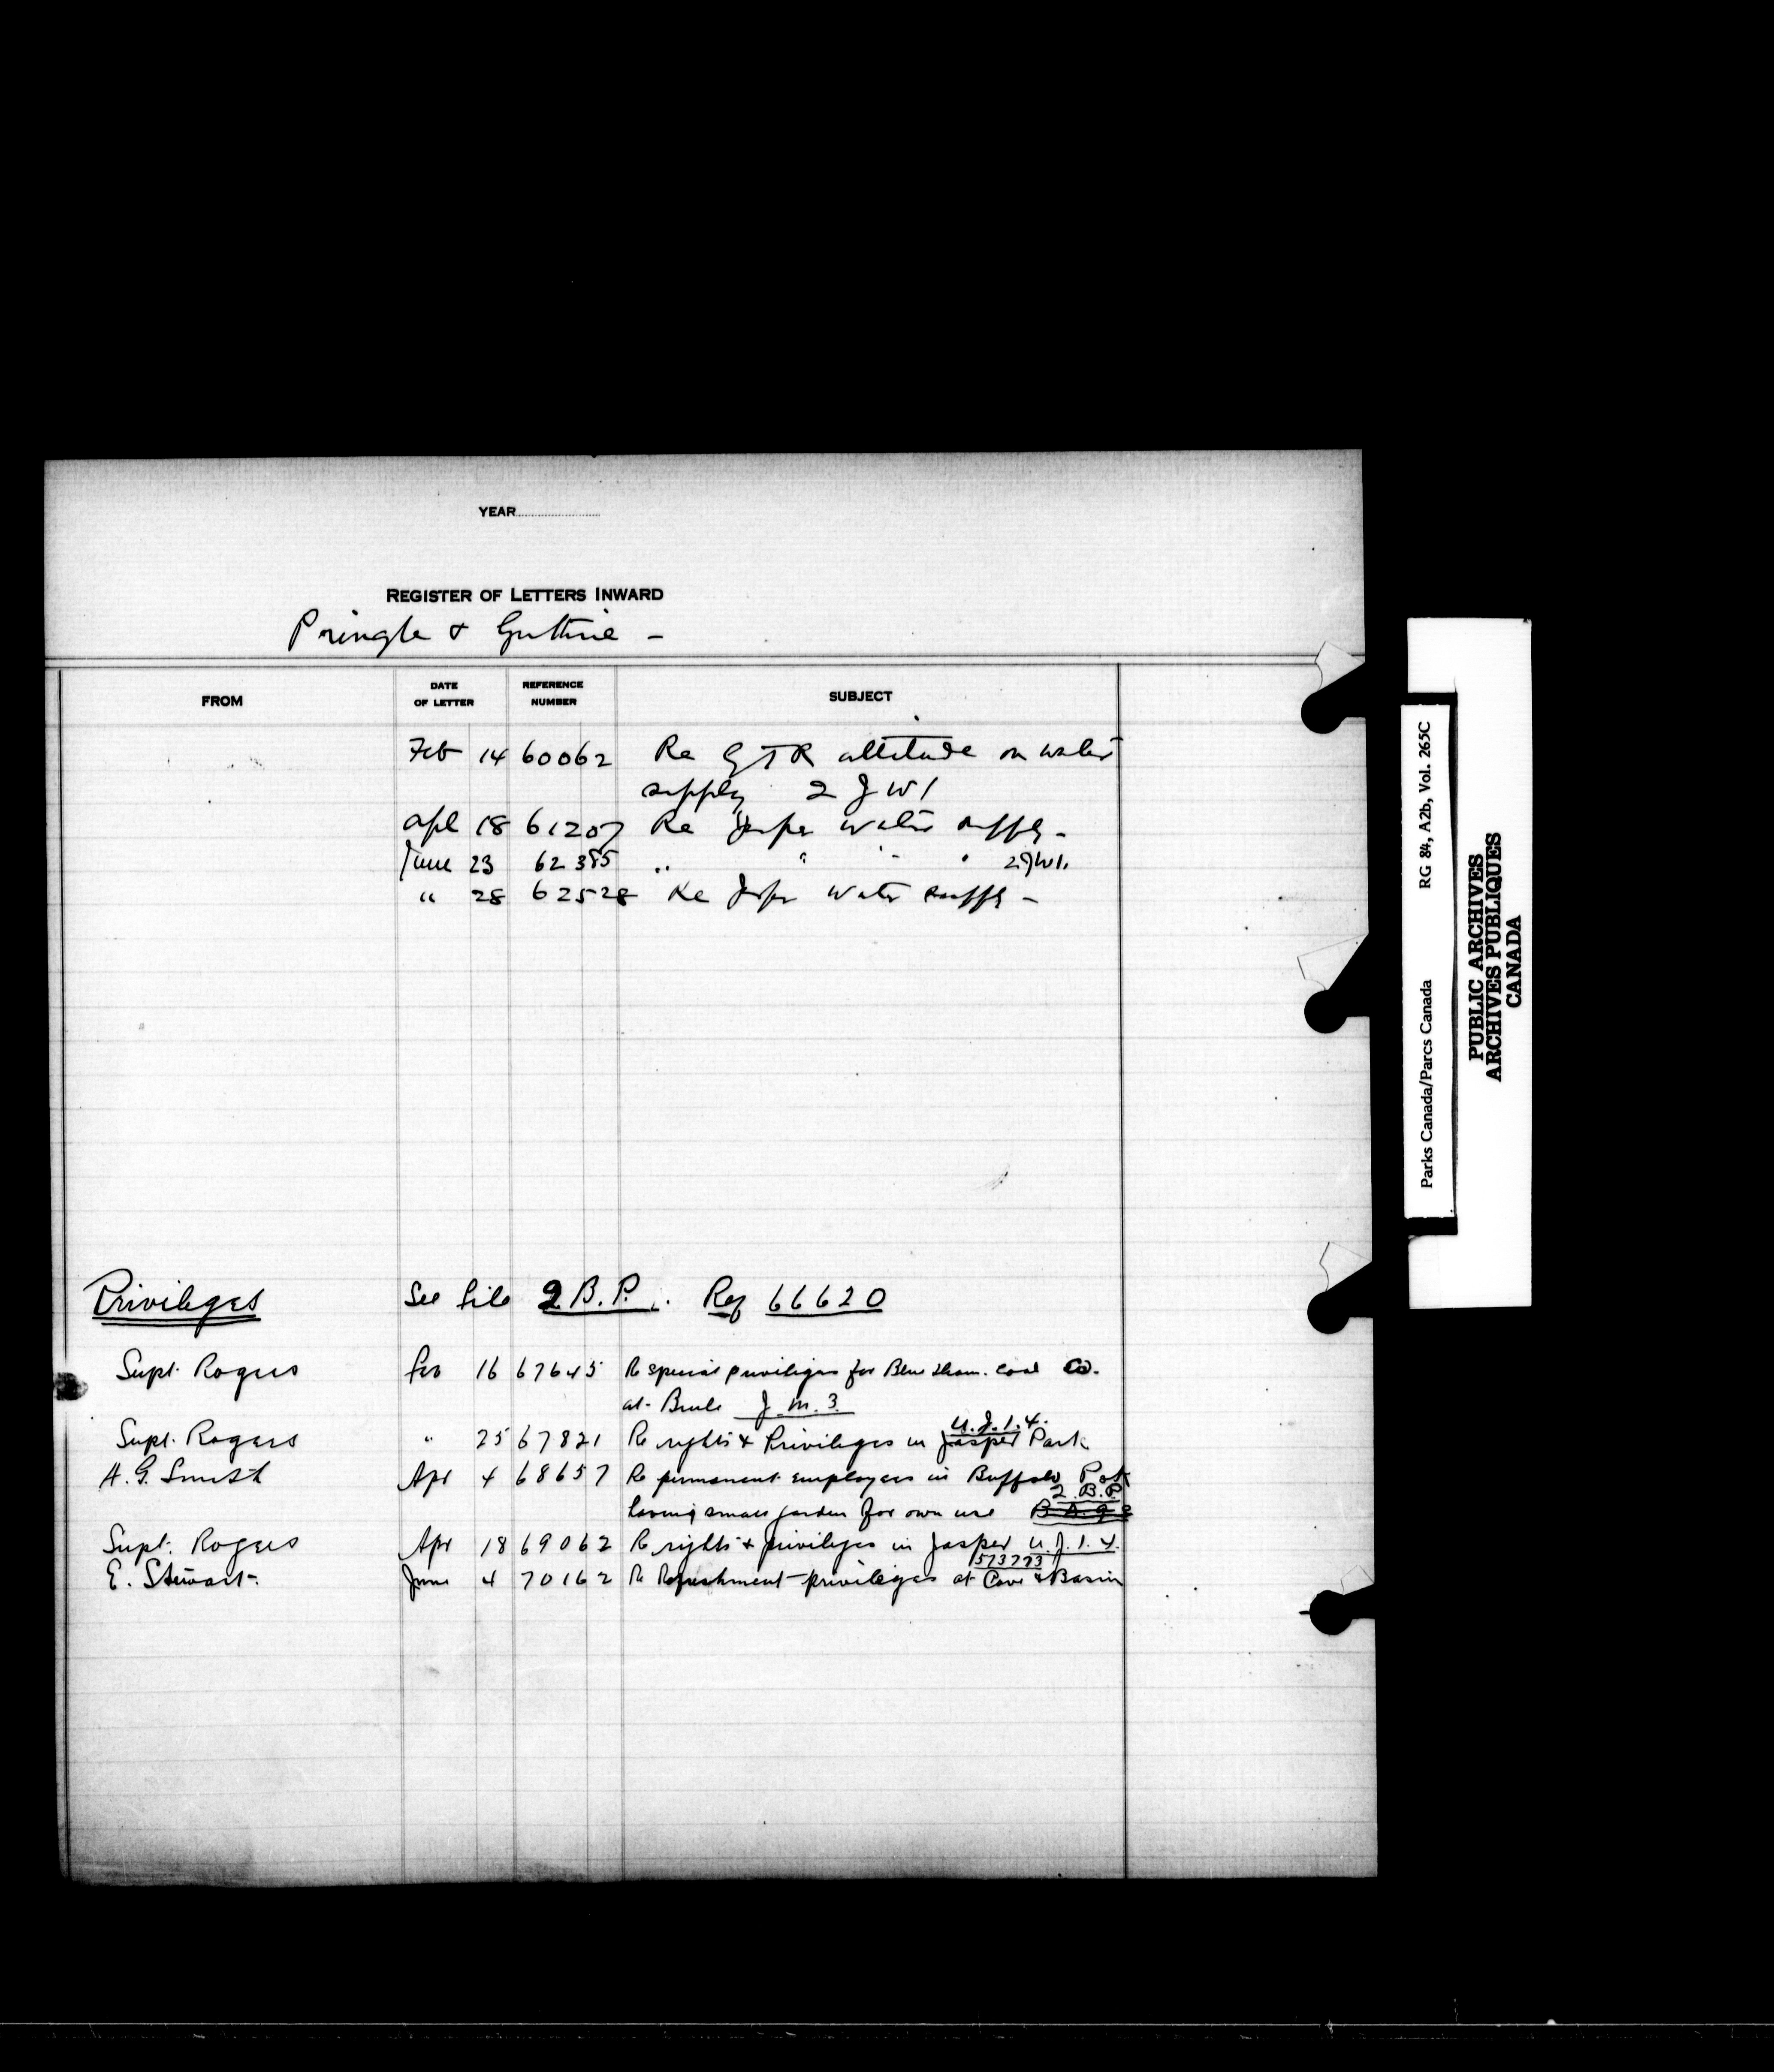 YEAR
REGISTER OF LETTERS INWARD
Pringle & Guthrie -
FROM DATE OF LETTER REFERENCE NUMBER SUBJECT
Feb 14 60062 Re GTR attitude on water
supply 2 J W 1
Apl 18 61207 Re Jasper water supply -
June 23 62385 " " " " 2 J W 1.
" 28 62528 Re Jasper Water supply -
Privileges See file 2 B.P. Req 66620
Supt. Rogers Feb 16 67645 Re special privileges for Blue Coal Co.
at Brule J. M. 3.
U.J.1.4.
Supt. Rogers " 25 67821 Re rights & Privileges in Jasper Park
A. G. Smith Apr 4 68657 Re permanent employees in Buffalo Park
2. B.P.
having small garden for own use
Supt. Rogers Apr 18 69062 Re rights & privileges in Jasper U.J.1.4.
513773
E. Stewart. June 4 70162 Re Refreshment privileges at Cave & Basin
Parks Canada/Parcs Canada RG 84, A2b, Vol. 265C
PUBLIC ARCHIVES
ARCHIVES PUBLIQUES
CANADA